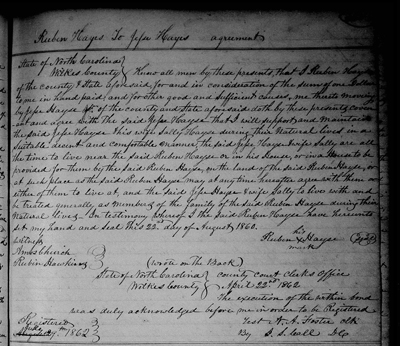 Reuben Hayes To Jesse Hayes agreement
State of North Carolina
Wilkes County Know all men by these presents, that I Reuben Hayes
of the county & State aforesaid, for and in consideration of the sum of one Dollar
to me in hand paid, and for other good and sufficient causes, me thereto moving
by Jesse Hayes of the county and State aforesaid doth by these presents coven
ant and agree with the Said Jesse Hayes that I will support and maintain
the said Jesse Hayes & his wife Sally Hayes during their Natural lives in a
suitable decent and comfortable manner, the said Jesse Hayes & wife Sally are all
the time to live near the Said Reuben Hayes or in his House, or in a House to be
provided for them by the Said Reuben Hayes, on the land of the Said Reuben Hayes, or
at such place as the Said Reuben Hayes may at any time hereafter agree with them or
either of them to live at, and the Said Jesse Hayes & wife Sally to live with and
be treated generally, as members of the family of the Said Reuben Hayes during their
Natural lives. In testimony whereof I the Said Reuben Hayes have hereunto
set my hand and seal This 22nd day of August 1860.
his
Witness Reuben X Hayes
mark
Ambs Church
Rubin Hawkins (wrote on the Back)
State of North Carolina county court Clerks Office
Wilkes County April 22nd 1862
The execution of the within bond
was duly acknowledged before me in order to be Registered
Registered Test A. A. Foster clk
1862 By